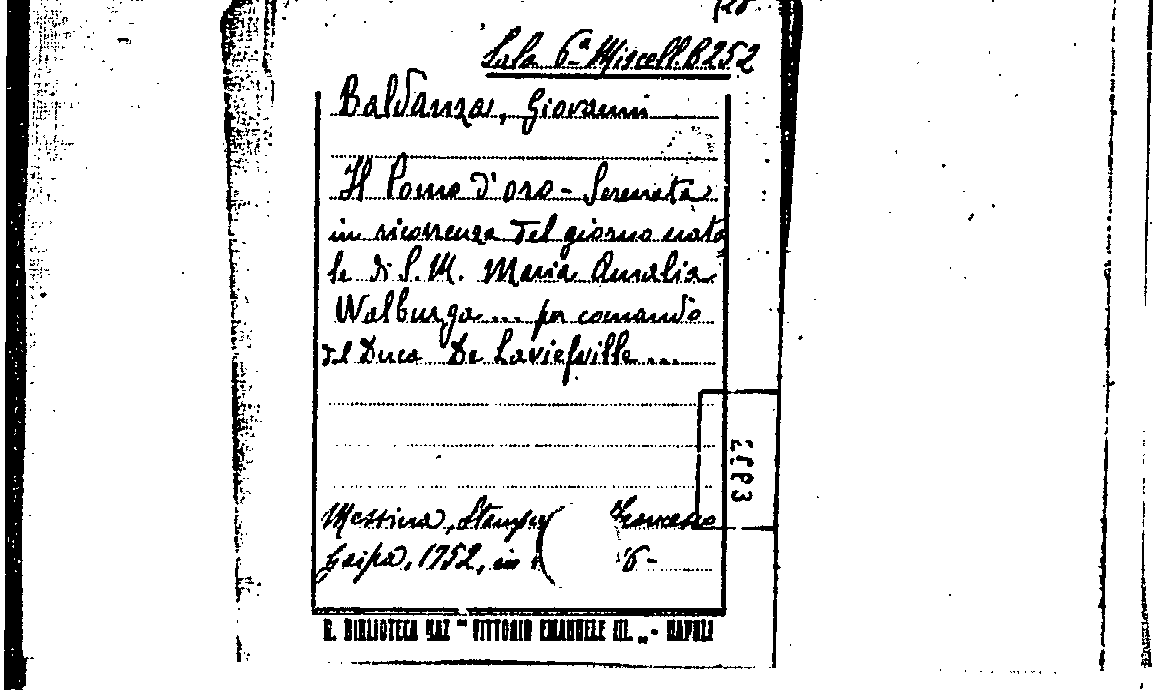 Sala 6ª Miscell. B252
Baldanza, Giovanni
Il Pomo d'oro - Serenata
in ricorrenza del giorno nata
le di S. M. Maria Amalia
Walburga... per comando
del Duca De Laviefville...
Messina, Stamp Francesco
Gaipa, 1752, in 6-
R. BIBLIOTECA NAZ "VITTORIO EMANUELE III" - NAPOLI